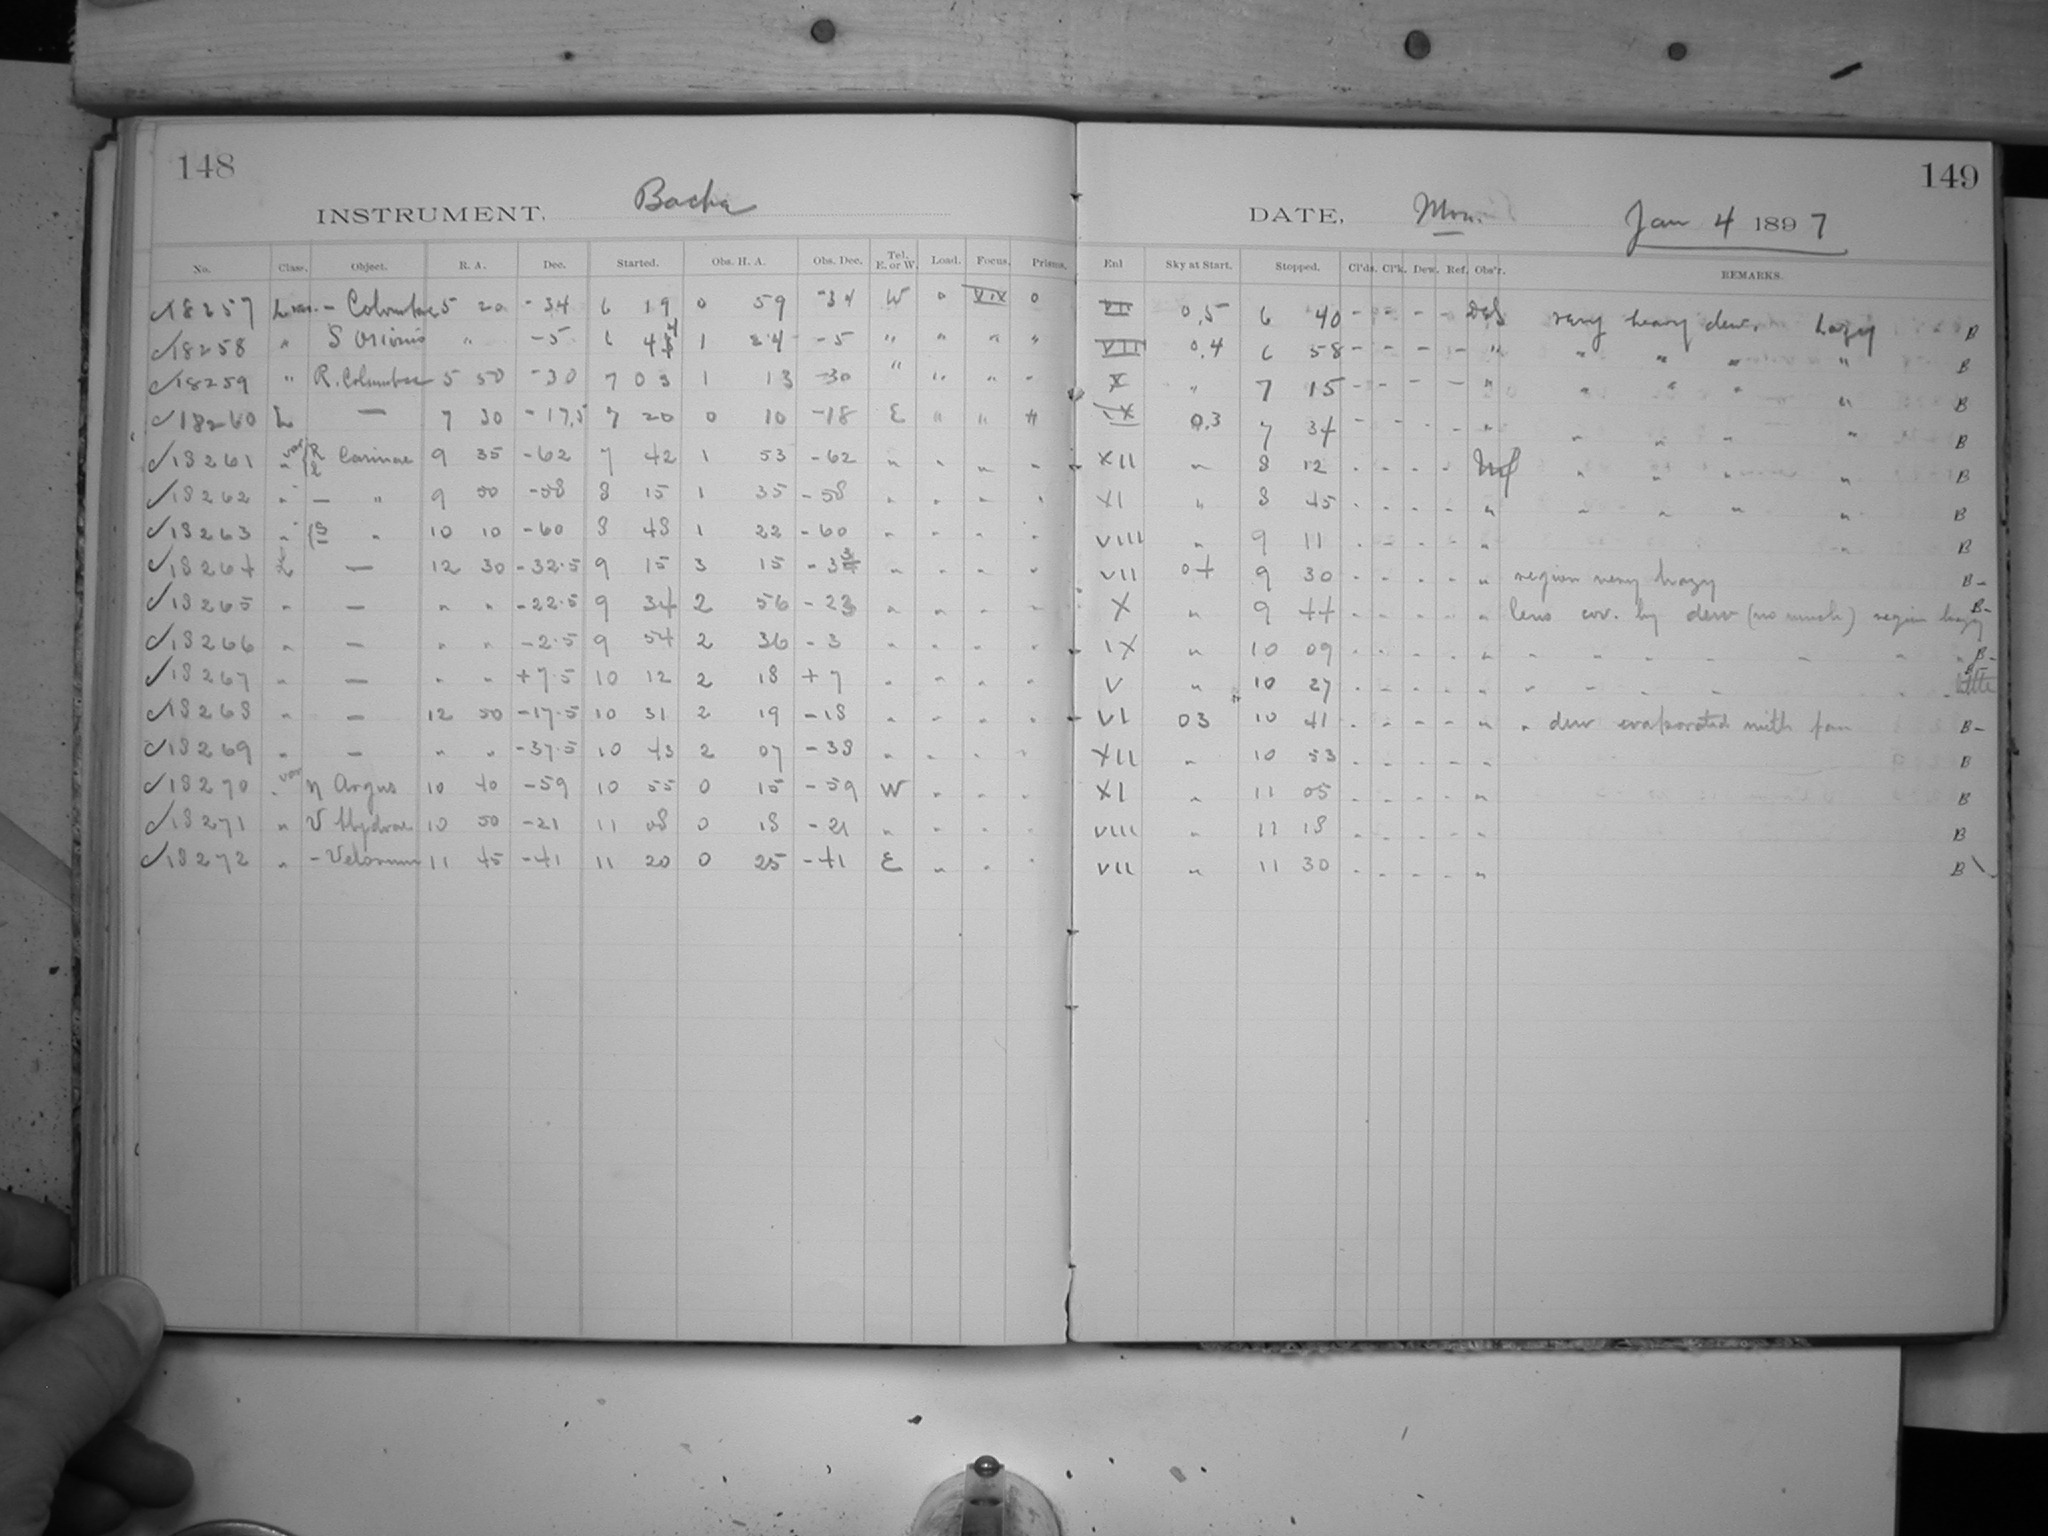 148
INSTRUMENT, Bache
No. Class. Object. R. A. Dec. Started. Obs. H. A. Obs. Dec. Tel. E. or W. Load. Focus. Prisms.
√18257 L var. - Columbae 5 20 -34 6 19 0 59 -34 W 0 XIX 0
√18258 " S Orionis " -5 6 44 1 24 -5 " " " "
√18259 " R. Columbae 5 50 -30 7 03 1 13 -30 " " " "
√18260 L — 7 30 -17.5 7 20 0 10 -18 E " " "
√18261 " var { R l Carinae 9 35 -62 7 42 1 53 -62 " " " "
√18262 " — " 9 50 -58 8 15 1 35 -58 " " " "
√18263 " { S — " 10 10 -60 8 48 1 22 -60 " " " "
√18264 L — 12 30 -32.5 9 15 3 15 -33 " " " "
√18265 " — " " -22.5 9 34 2 56 -23 " " " "
√18266 " — " " -2.5 9 54 2 36 -3 " " " "
√18267 " — " " +7.5 10 12 2 18 +7 " " " "
√18268 " — 12 50 -17.5 10 31 2 19 -18 " " " "
√18269 " — " " -37.5 10 43 2 07 -38 " " " "
√18270 " var η Argus 10 40 -59 10 55 0 15 -59 W " " "
√18271 " V Hydrae 10 50 -21 11 08 0 18 -21 " " " "
√18272 " - Velorum 11 45 -41 11 20 0 25 -41 E " " "
149
DATE, Mon. Jan 4 1897
Enl Sky at Start. Stopped. Cl'ds. Cl'k. Dew. Ref. Obs'r. REMARKS.
VII 0.5 6 40 - - - - very heavy dew. hazy B
VIII 0.4 6 58 - - - - " " " " " B
X " 7 15 - - - - " " " " " B
IX 0.3 7 34 - - - - " " " " " B
XII " 8 12 - - - - " " " " B
XI " 8 45 - - - - " " " " " B
VIII " 9 11 - - - - " " B
VII 04 9 30 - - - - " region very hazy B-
X " 9 44 - - - - " lens cov. by dew (no much) region hazy B-
IX " 10 09 - - - - " " " " " " " " B-
V " 10 27 - - - - " " " " " " "
VI 03 10 41 - - - - " " dew evaporated with fan B-
XII " 10 53 - - - - " B
XI " 11 05 - - - - " B
VIII " 11 18 - - - - " B
VII " 11 30 - - - - " B